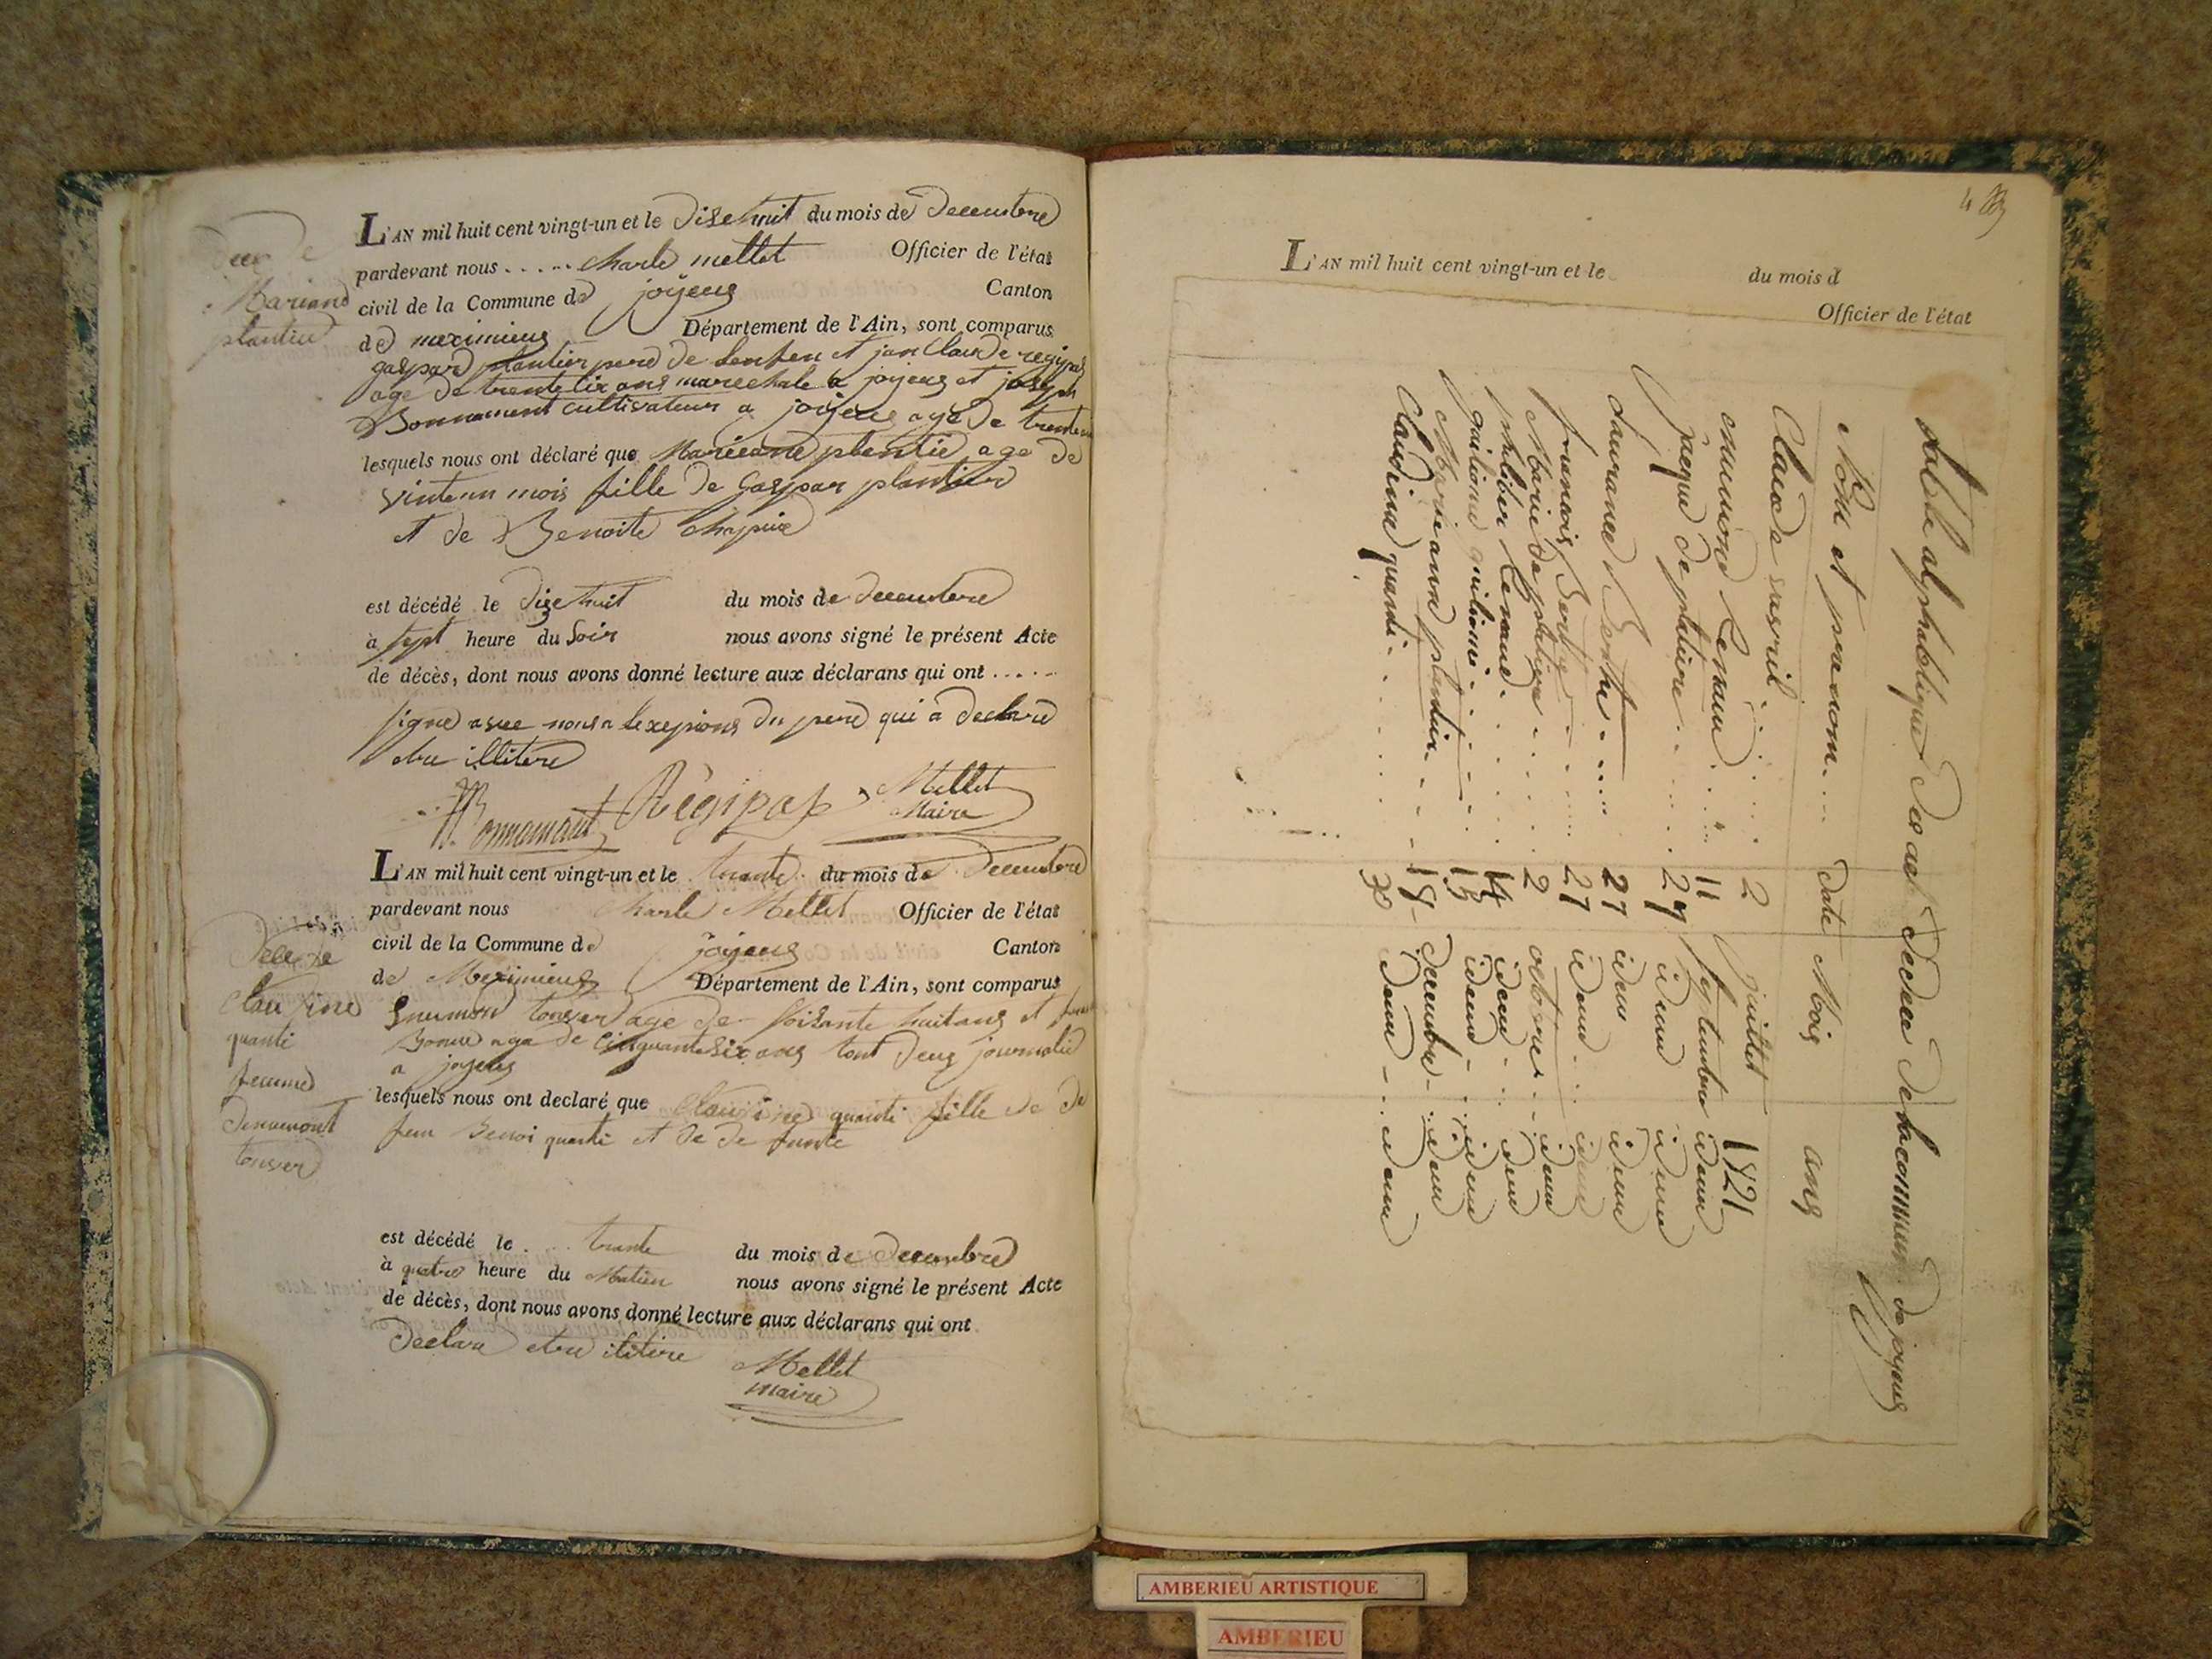 L'AN mil huit cent vingt-un et le dize huit du mois de decembre
pardevant nous ..... charle mellet Officier de l'état
civil de la Commune de joyeux Canton
de meximieux Département de l'Ain, sont comparus
gaspard plantier pere de lenfen et jan Claude regipas
age de trente six ans marechale a joyeux et joseph
Bonnament cultivateur a joyeux age de trente
lesquels nous ont déclaré que Marieane plentie age de
vinteun mois fille de Gaspar plantier
et de Benoite
est décédé le dize huit du mois de decembre
à sept heure du Soir nous avons signé le présent Acte
de décès, dont nous avons donné lecture aux déclarans qui ont .....
signe avec nous a lexepsions du pere qui a declare
etre illitere
Bonnamant Régipas Mellet
Maire
Mariane
plantier
L'AN mil huit cent vingt-un et le trante du mois de decembre
pardevant nous charle Mellet Officier de l'état
civil de la Commune de joyeux Canton
de Meximieux Département de l'Ain, sont comparus
tonver age de soisante huit ans et
age de cinquante six ans tout deux journalie
a joyeux
lesquels nous ont declaré que Claudine quanti fille de de
feu Benoi quanti et de de funte
est décédé le .. trante du mois de decembre
à quatre heure du Matien nous avons signé le présent Acte
de décès, dont nous avons donné lecture aux déclarans qui ont
declare etre ilitere
Mellet
maire
Claudine
quanti
femme
tonver
L'AN mil huit cent vingt-un et le du mois d
Officier de l'état
table alphabetique des act decede de la commune de joyeux
Nom et prenom date Mois ans
Claude 2 juillet 1821
11 septembre idem
jaque de platiere 27 idem idem
Laurance Berthe 27 idem idem
francois 27 idem idem
Marie de platiere 2 octobre idem
philiber 14 idem idem
15 idem idem
Marie anne plantier 18 decembre idem
Claudine quanti 30 idem idem
AMBERIEU ARTISTIQUE
AMBERIEU